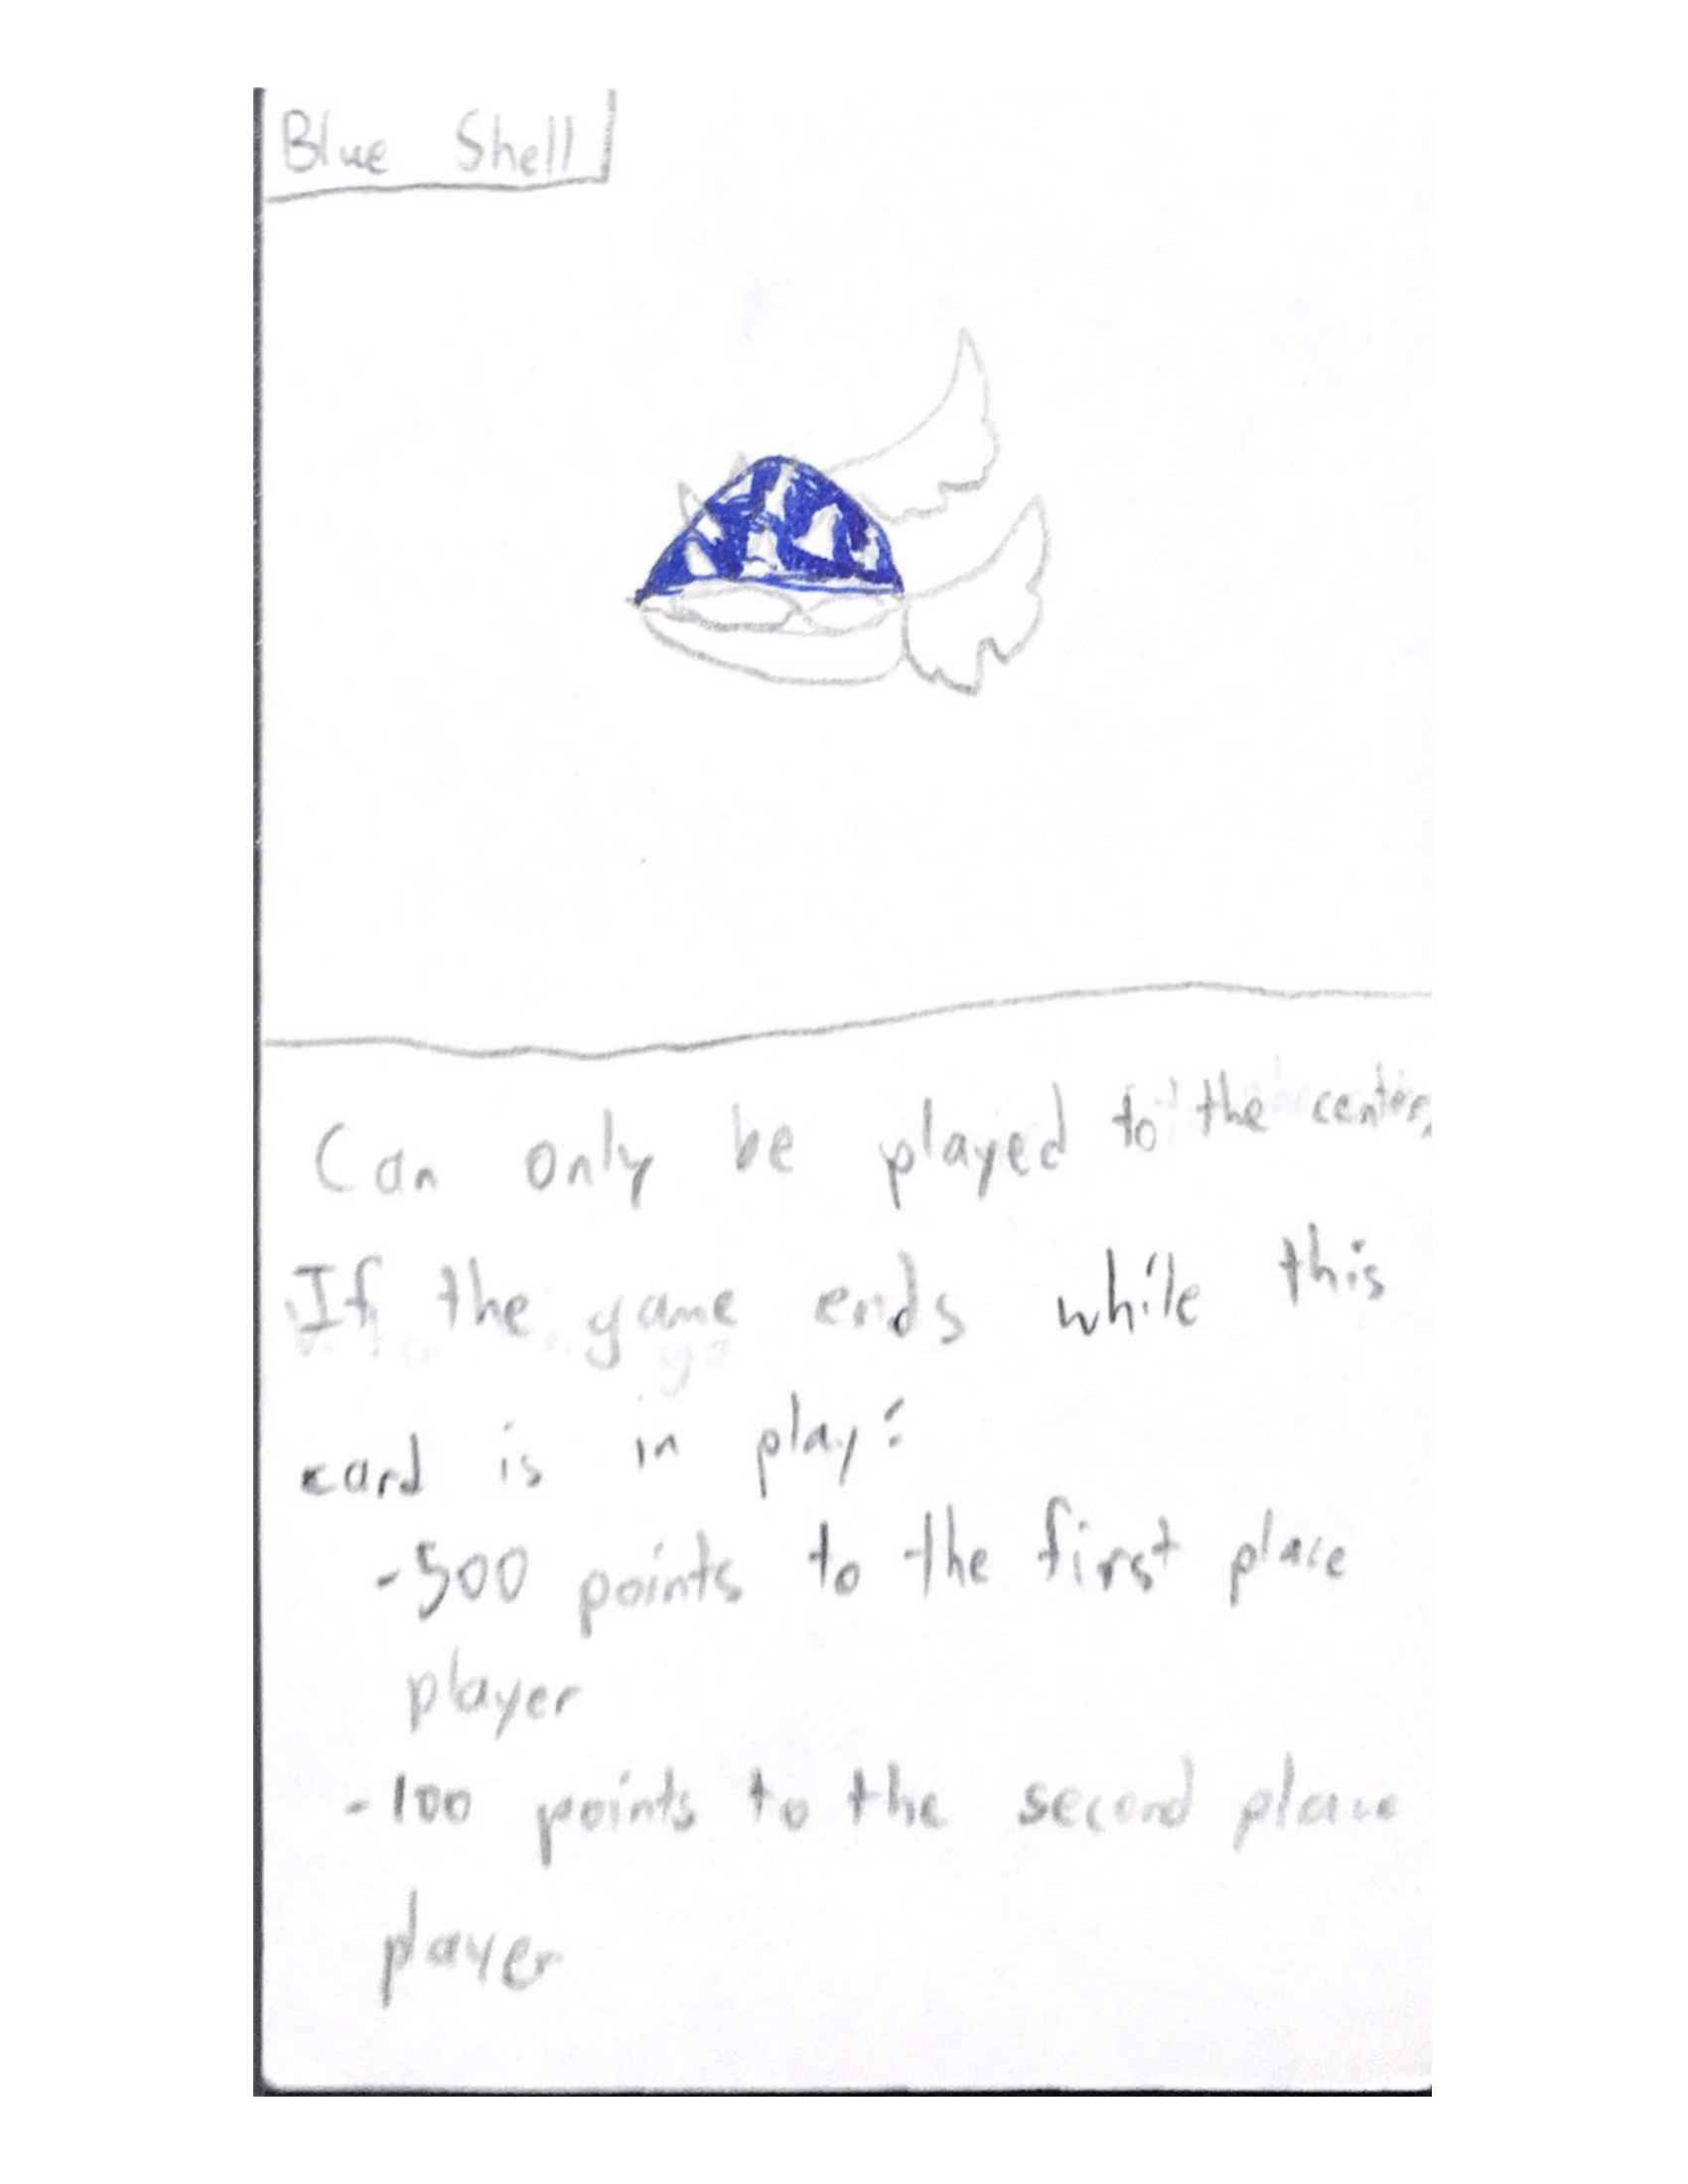 Blue Shell
Can only be played to the center.
If the game ends while this
card is in play:
-500 points to the first place
player
-100 points to the second place
player